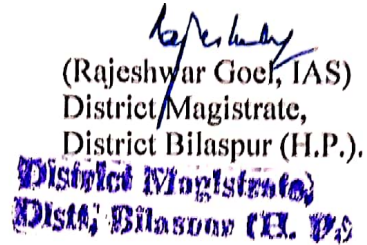 (Rajeshwar Goel, IAS)
District Magistrate,
District Bilaspur (H.P.).
District Magistrate,
Distt, Bilaspur (H. P.)